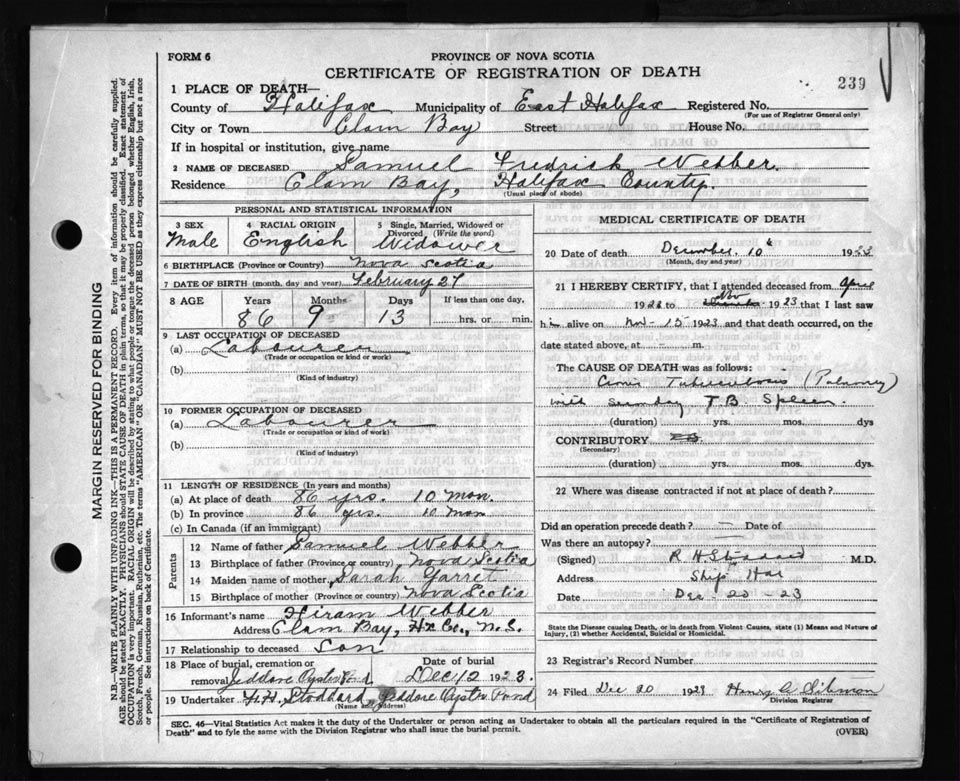 FORM 6
PROVINCE OF NOVA SCOTIA
CERTIFICATE OF REGISTRATION OF DEATH
239
1 PLACE OF DEATH—
County of Halifax Municipality of East Halifax Registered No.
(For use of Registrar General only)
City or Town Clam Bay Street House No.
If in hospital or institution, give name
2 NAME OF DECEASED Samuel Fredrick Webber.
Residence Clam Bay, Halifax County.
(Usual place of abode)
PERSONAL AND STATISTICAL INFORMATION
3 SEX 4 RACIAL ORIGIN 5 Single, Married, Widowed or Divorced (Write the word)
Male English Widower
6 BIRTHPLACE (Province or Country) Nova Scotia
7 DATE OF BIRTH (month, day and year) February 27
8 AGE Years Months Days If less than one day,
86 9 13 hrs. or min.
9 LAST OCCUPATION OF DECEASED
(a) Labourer
(Trade or occupation or kind of work)
(b)
(Kind of industry)
10 FORMER OCCUPATION OF DECEASED
(a) Labourer
(Trade or occupation or kind of work)
(b)
(Kind of industry)
11 LENGTH OF RESIDENCE (In years and months)
(a) At place of death 86 yrs. 10 mon.
(b) In province 86 yrs. 10 mon
(c) In Canada (if an immigrant)
Parents
12 Name of father Samuel Webber
13 Birthplace of father (Province or country) Nova Scotia
14 Maiden name of mother Sarah Garret
15 Birthplace of mother (Province or country) Nova Scotia
16 Informant's name Hiram Webber
Address Clam Bay, Hx Co., N.S.
17 Relationship to deceased Son
18 Place of burial, cremation or removal Jeddore Oyster Pond Date of burial Dec 12 1923.
19 Undertaker H. Stoddard Jeddore Oyster Pond
(Name and Address)
MEDICAL CERTIFICATE OF DEATH
20 Date of death December. 10th 1923
(Month, day and year)
21 I HEREBY CERTIFY, that I attended deceased from April
192 to Nov 1923 that I last saw
him alive on Nov-15 1923 and that death occurred, on the
date stated above, at m.
The CAUSE OF DEATH was as follows:
Tuberculosis (Pulmonary)
with Secondary T.B. Spleen.
(duration) yrs. mos. dys
CONTRIBUTORY
(Secondary)
(duration) yrs. mos. dys.
22 Where was disease contracted if not at place of death?
Did an operation precede death? — Date of
Was there an autopsy? —
(Signed) R H Stoddard M.D.
Address Ship Har
Date Dec-20-23
State the Disease causing Death, or in death from Violent Causes, state (1) Means and Nature of Injury, (2) whether Accidental, Suicidal or Homicidal.
23 Registrar's Record Number
24 Filed Dec 20 1923 Henry Sibmon
Division Registrar
SEC. 46—Vital Statistics Act makes it the duty of the Undertaker or person acting as Undertaker to obtain all the particulars required in the "Certificate of Registration of
Death" and to fyle the same with the Division Registrar who shall issue the burial permit.
(OVER)
MARGIN RESERVED FOR BINDING
N.B.—WRITE PLAINLY, WITH UNFADING INK—THIS IS A PERMANENT RECORD. Every item of information should be carefully supplied.
AGE should be stated EXACTLY. PHYSICIANS should STATE CAUSE OF DEATH in plain terms, so that it may be properly classified. Exact statement of
OCCUPATION is very important. RACIAL ORIGIN will be described by stating to what people or tongue the deceased person belonged whether English, Irish,
Scotch, French, German, Russian, Ruthenian, etc. The terms "AMERICAN" OR "CANADIAN" MUST NOT BE USED as they express citizenship but not a race
or people. See instructions on back of Certificate.